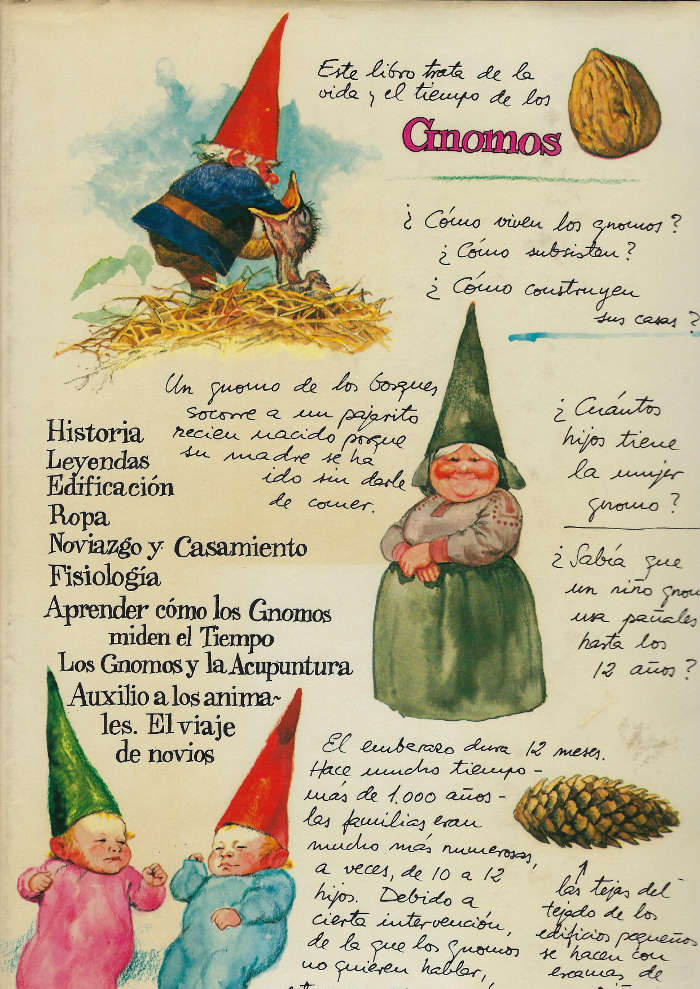 Este libro trata de la
vida y el tiempo de los
Gnomos
¿Cómo viven los gnomos?
¿Cómo subsisten?
¿Cómo construyen
sus casas?
Un gnomo de los bosques
socorre a un pajarito
recien nacido porque
su madre se ha
ido sin darle
de comer.
Historia
Leyendas
Edificación
Ropa
Noviazgo y Casamiento
Fisiología
Aprender cómo los Gnomos
miden el Tiempo
Los Gnomos y la Acupuntura
Auxilio a los anima-
les. El viaje
de novios
¿Cuántos
hijos tiene
la mujer
gnomo?
¿Sabía que
un niño gnom
usa pañales
hasta los
12 años?
El embarazo dura 12 meses.
Hace mucho tiempo -
más de 1.000 años -
las familias eran
mucho más numerosas,
a veces, de 10 a 12
hijos. Debido a
cierta intervención,
de la que los gnomos
no quieren hablar,
las tejas del
tejado de los
edificios pequeños
se hacen con
escamas de